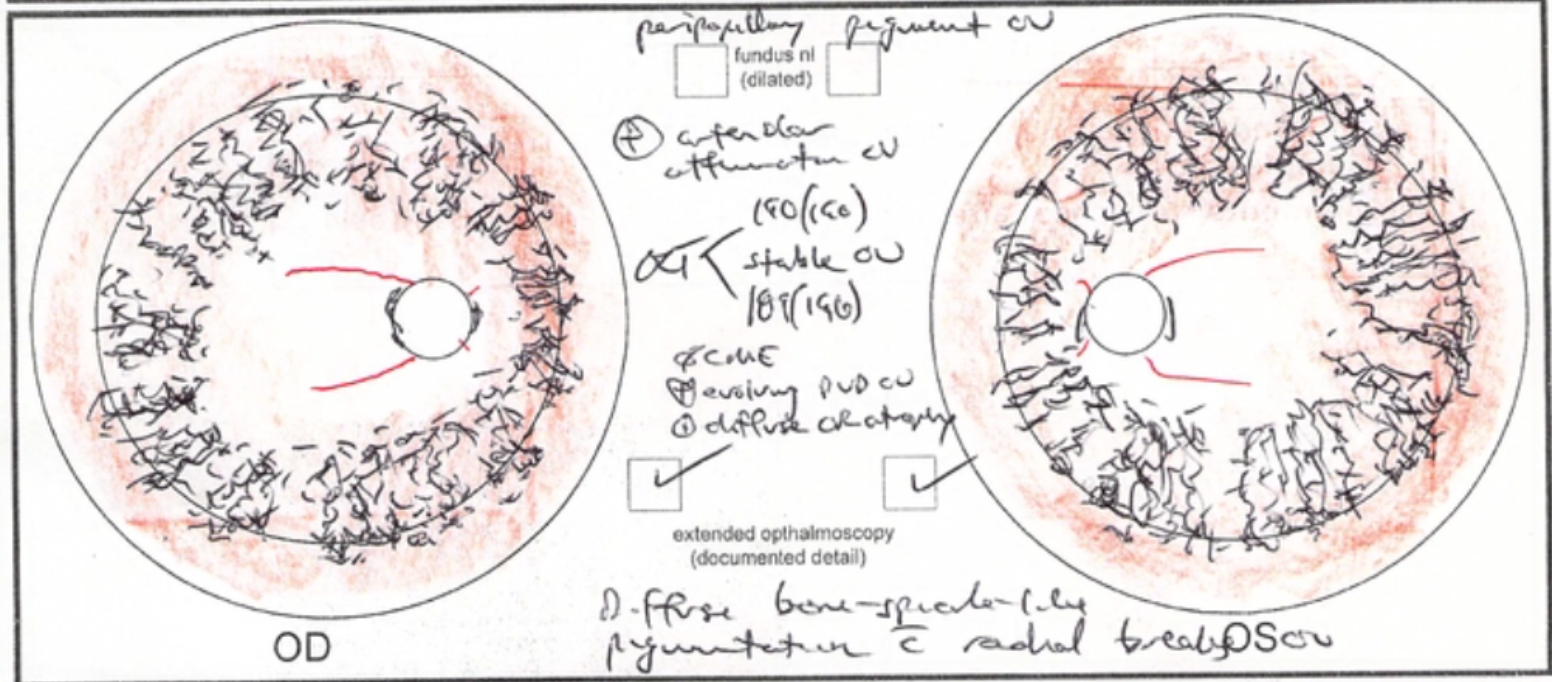 peripapillary pigment OU
fundus nl
(dilated)
⊕ arteriolar
attenuation OU
OCT <
stable OU
189(190)
∅ CME
⊕ evolving PVD OU
⊕ diffuse CR atrophy
extended opthalmoscopy
(documented detail)
Diffuse bone-spicule-like
pigmentation c̄ radial breaks OU
OD
OS